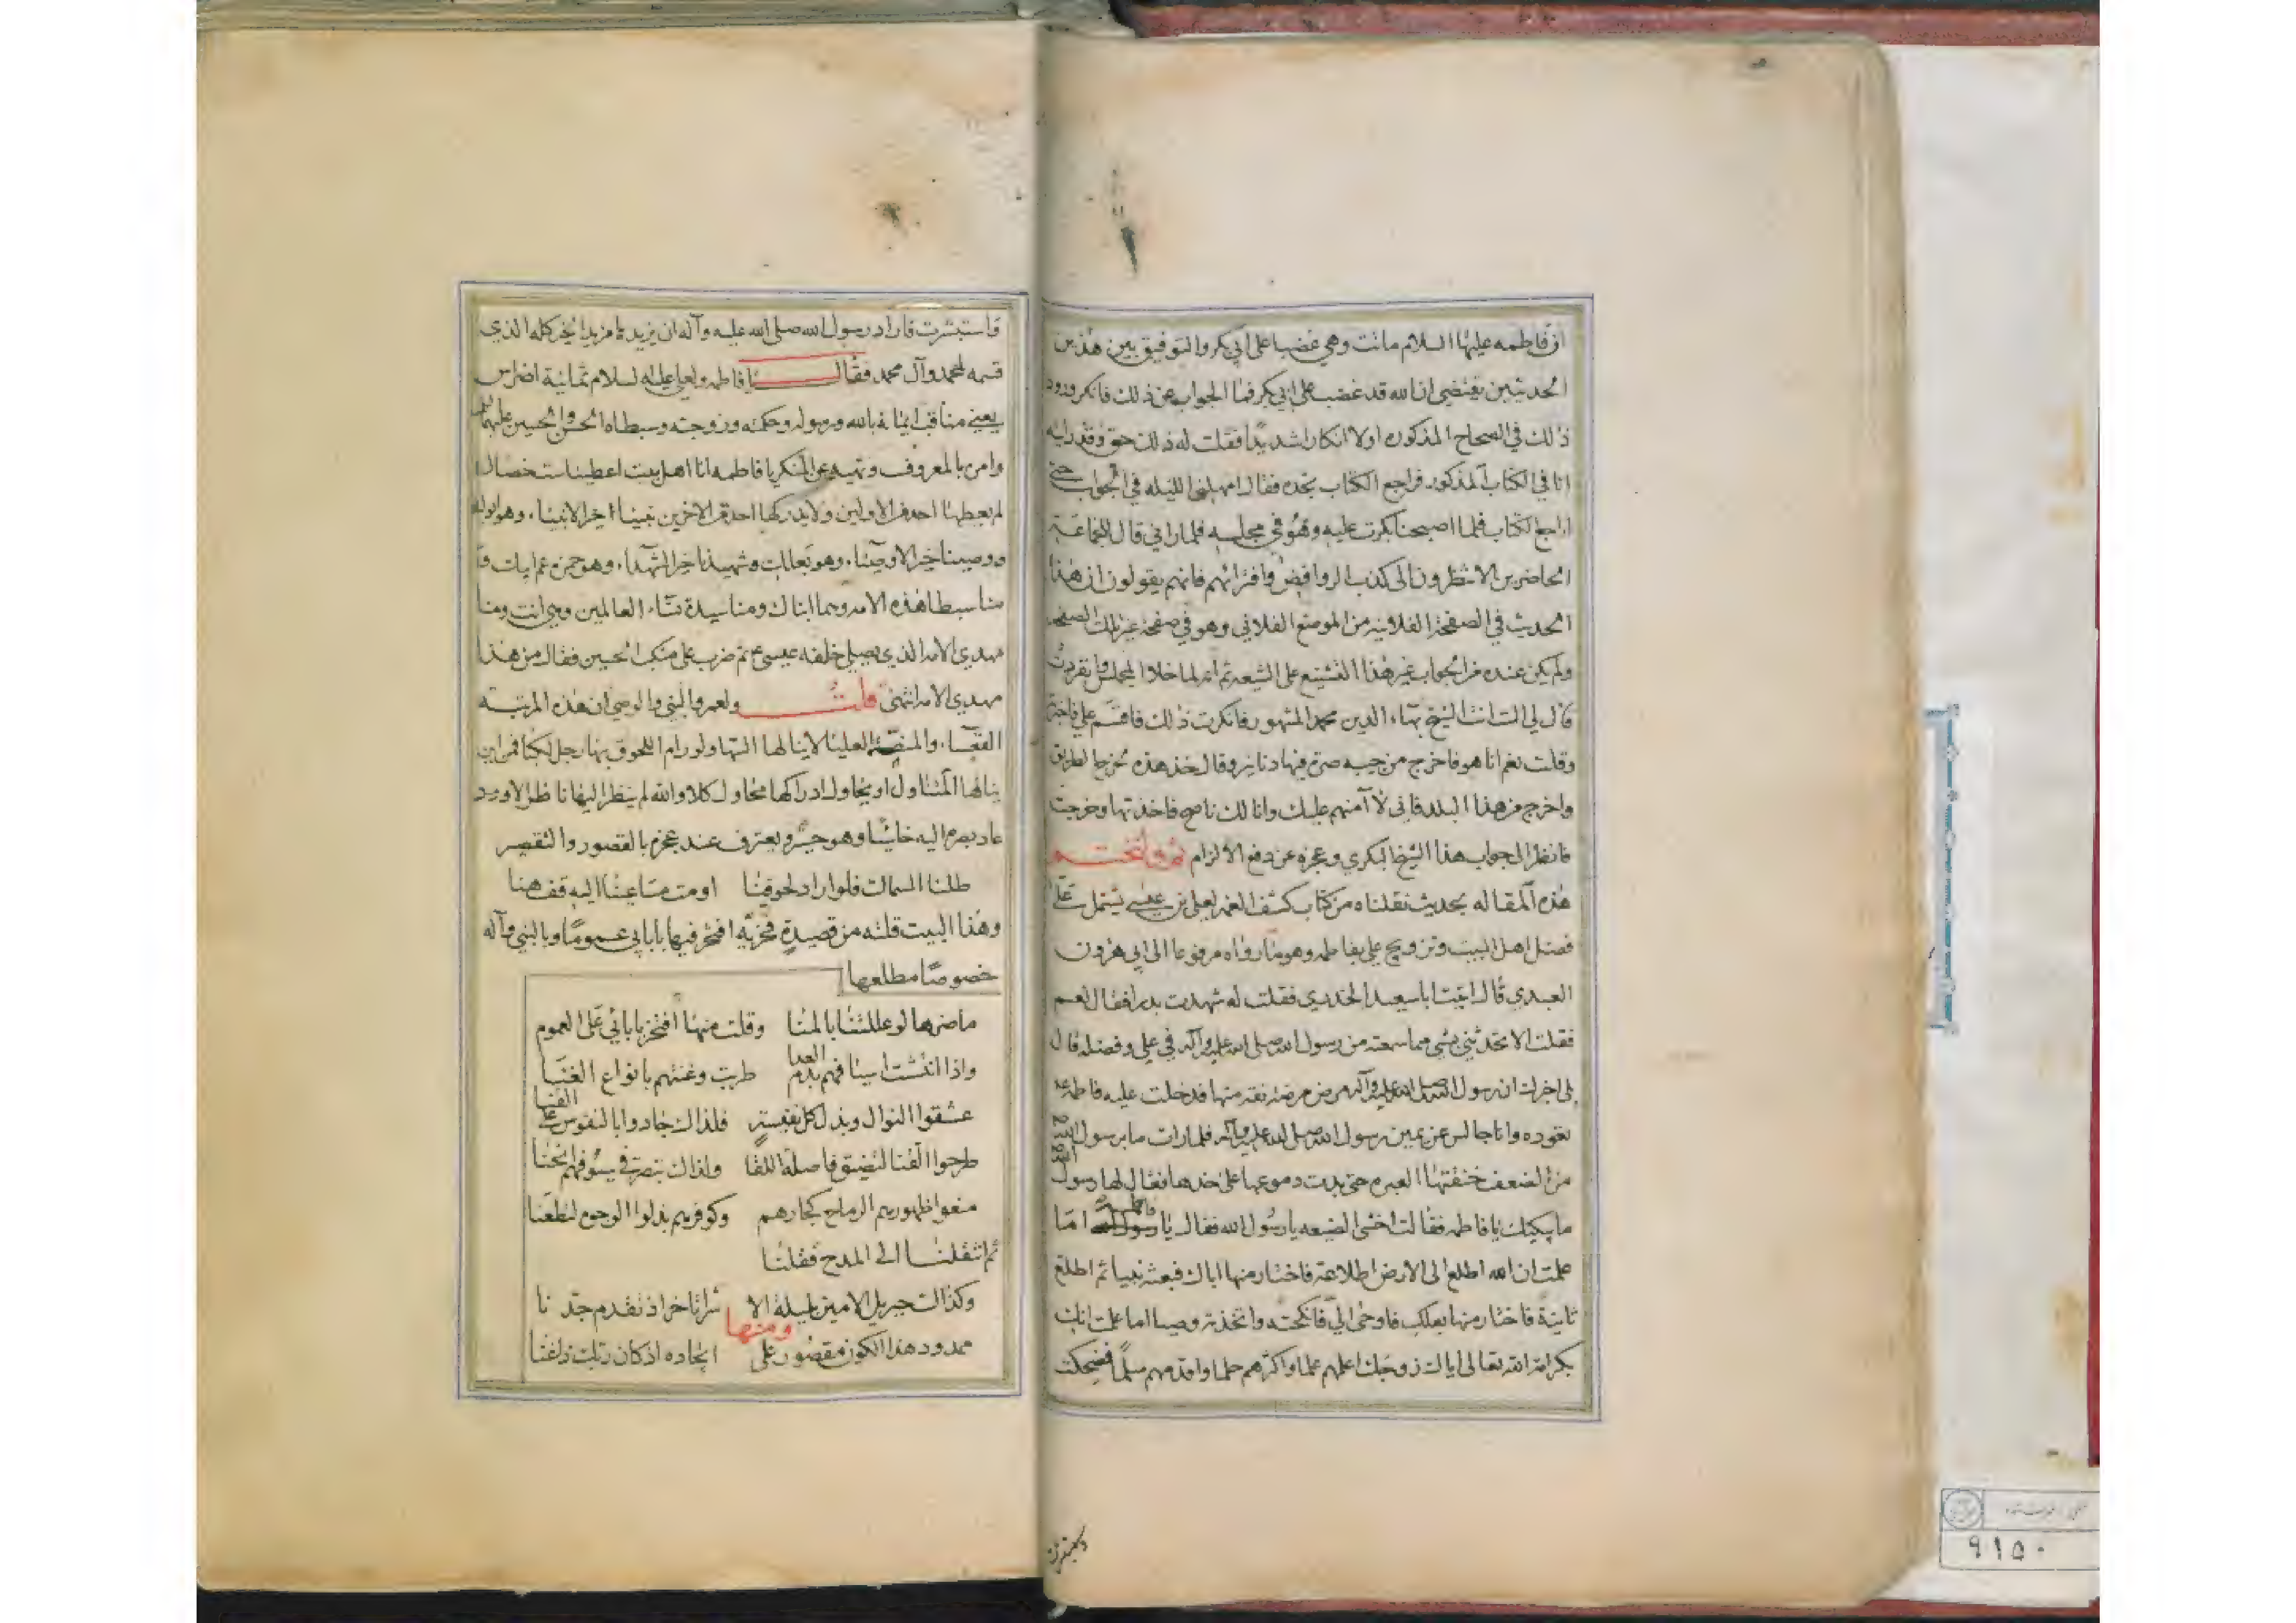 ان فاطمه عليها السلام ماتت وهي غضبا على ابي بكر والتوفيق بين هذين
الحديثين يقتضي ان الله قد غضب على ابي بكر فما الجواب عن ذلك فانكر ورود
ذلك في الصحاح المذكوره اولا انكارا شديدا فقلت له ذلك حق وقد رايته
انا في الكتاب المذكور فراجع الكتاب تجده فقال امهلني الليله في الجواب حتى
اراجع الكتاب فلما اصبحنا بكرت عليه وهو في مجلسه فلما راني قال للجماعة
الحاضرين الا تنظرون الى كذب الروافض وافترائهم فانهم يقولون ان هذا
الحديث في الصفحة الفلانيه من الموضع الفلاني وهو في صفحة غير تلك الصفحه
ولم يكن عنده من الجواب غير هذا التشنيع على الشيعه ثم انه لما خلا المجلس وانفردت
قال لي الست انت الشيخ بهاء الدين محمد المشهور فانكرت ذلك فاقسم علي فاجبته
وقلت نعم انا هو فاخرج من جيبه صرة فيها دنانير وقال خذ هذه لخرج الطريق
واخرج من هذا البلد فاني لا آمنهم عليك وانا لك ناصح فاخذتها وخرجت
فانظر الى جواب هذا الشيخ البكري وعجزه عن دفع الالزام ثم ولنختم
هذه المقاله بحديث نقلناه من كتاب كشف الغمه لعلي بن عيسى يشتمل على
فضل اهل البيت وتزويج علي بفاطمه وهو ما رواه مرفوعا الى ابي هرون
العبدي قال اتيت ابا سعيد الخدري فقلت له شهدت بدرا فقال نعم
فقلت الا تحدثني بشي مما سمعته من رسول الله صلى الله عليه وآله في علي وفضله قال
بلى اخبرك ان رسول الله صلى الله عليه وآله مرض مرضة نقه منها فدخلت عليه فاطمه
تعوده وانا جالس عن يمين رسول الله صلى الله عليه وآله فلما رات ما برسول الله
من الضعف خنقتها العبره حتى بدت دموعها على خدها فقال لها رسول الله
ما يبكيك يا فاطمه فقالت اخشى الضيعه يا رسول الله فقال يا فاطمة اما
علمت ان الله اطلع الى الارض اطلاعة فاختار منها اباك فبعثه نبيا ثم اطلع
ثانية فاختار منها بعلك فاوحى الي فانكحته واتخذته وصيا اما علمت انك
بكرامة الله تعالى اياك زوجك اعلمهم علما واكثرهم حلما واقدمهم سلما فضحكت
واستبشرت
فاستبشرت فاراد رسول الله صلى الله عليه وآله ان يزيدها مزيد الخير كله الذي
قسمه لمحمد وآل محمد فقال يا فاطمه ولعلي عليه السلام ثمانية اضراس
يعني مناقب ايمانه بالله ورسوله وحكمته وزوجته وسبطاه الحسن والحسين عليهما
وامره بالمعروف ونهيه عن المنكر يا فاطمه انا اهل بيت اعطينا ست خصال
لم يعطها احد من الاولين ولا يدركها احد من الاخرين نبينا خير الانبياء وهو ابوك
ووصينا خير الاوصياء وهو بعلك وشهيدنا خير الشهداء وهو حمزه عم ابيك و
منا سبطا هذه الامه وهما ابناك ومنا سيدة نساء العالمين وهي انت ومنا
مهدي الامه الذي يصلي خلفه عيسى ثم ضرب على منكب الحسين فقال من هذا
مهدي الامه انتهى قلت ولعمر والنبي والوصي ان هذه المرتبة
القعساء والمنصة العليا لا ينالها السها ولو رام اللحوق بها رجل لكبا فمن اين
ينالها المتناول او يحاول ادراكها محاول كلا والله لم ينظر اليها ناظر الا ورد
عاد بصره اليه خاسئا وهو حسير ويعترف عند عجزه بالقصور والتقصير
طلنا السماك فلو اراد لحوقنا اومت مساعينا اليه قف هنا
وهذا البيت قلته من قصيدة فخرية افتخر فيها باباي عموما وبالنبي وآله
خصوصا مطلعها
ما ضرها لو عللتنا بالمنا وقلت منها افتخر بابائي على العموم
واذا انتشت اسيافهم بدم العدا طربت وغنتهم بانواع الغنا
عشقوا النوال وبذل كل نفيسة فلذاك جادوا بالنفوس على القنا
طرحوا القنا لتضيق فاصلة اللقا ولذاك تبصر في سيوفهم انحنا
منعوا ظهورهم الرماح كجارهم وكوفرهم بذلوا الوجوه لتطعنا
ثم انتقلنا الى المدح فقلنا
وكذاك جبريل الامين بليلة الا سرا تاخر اذ تقدم جدنا
ومنها
ممدود هذا الكون مقصور على ايجاده اذ كان ربك ذا غنا
٩١٥٠